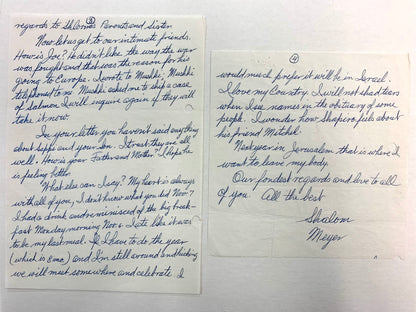 ③
regards to Shlomos Brout and Sister
Now let us get to our intimate friends.
How is Joe? He didn't like the way the war
was fought and that was the reason for his
going to Europe. I wrote to Mushki, Mushki
telephoned to me Mushki asked me to ship a case
of Salmon I will inquire again if they will
take it now.
In your letter you haven't said anything
about Yaffa and your Son. I trust they are all
well. How is your Father and Mother? I hope he
is feeling better.
What else can I say? My heart is always
with all of you, I don't know what you did Nov-7
I had a drink and reminisced of the big break-
fast Monday morning Nov 6. I ate like it was
to be my last meal. If I have to do the year
(which is 8 mo,) and I'm still around and kicking
we will meet somewhere and celebrate I
④
would much prefer it will be in Israel.
I love my Country I will not shed tears
when I see names in the obituary of some
people. I wonder how Shapiro feels about
his friend Mitchel.
Next year in Jerusalem that is where I
want to leave my body.
Our fondest regards and love to all
of you All the best
Shalom
Meyer